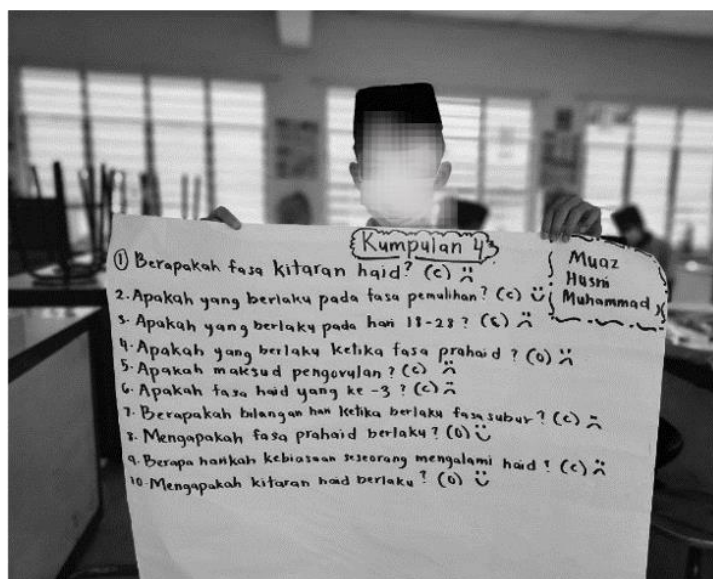 Kumpulan 4
Muaz
Husni
Muhammad
① Berapakah fasa kitaran haid? (c)
2. Apakah yang berlaku pada fasa pemulihan? (c)
3. Apakah yang berlaku pada hari 18-28? (c)
4. Apakah yang berlaku ketika fasa prahaid? (O)
5. Apakah maksud pengovulan? (c)
6. Apakah fasa haid yang ke -3? (c)
7. Berapakah bilangan hari ketika berlaku fasa subur? (c)
8. Mengapakah fasa prahaid berlaku? (O)
9. Berapa harikah kebiasaan seseorang mengalami haid? (c)
10. Mengapakah kitaran haid berlaku? (O)